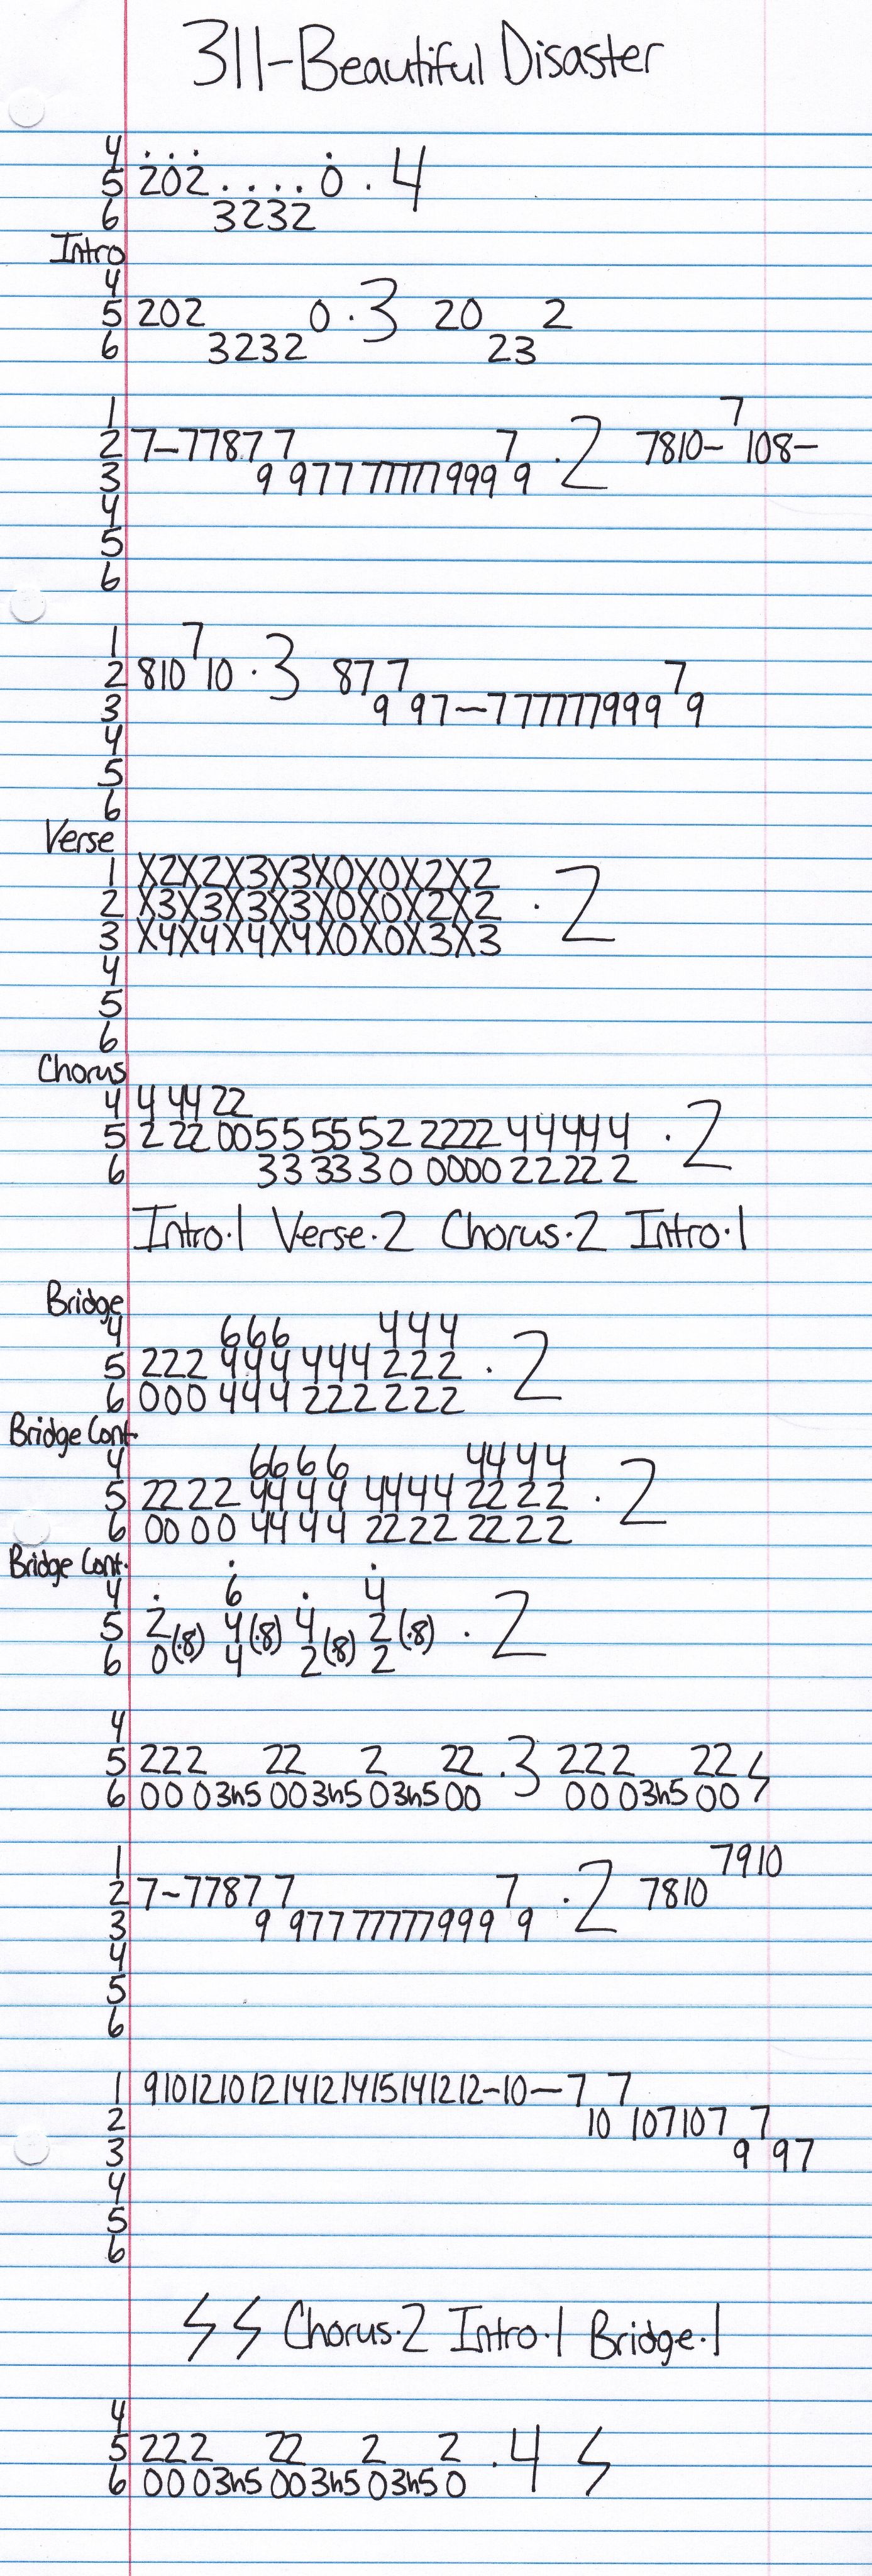 311-Beautiful Disaster
4 . . .          .
5 202 . . . . 0 . 4
6 3232
Intro
4
5 202 0 · 3 20 2
6 3232 23
1 7
2 7-7787 7 7 · 2 7810- 108-
3 9 977 777777999 9
4
5
6
1 7
2 810 10 · 3 87 7 7
3 9 97-7 77777999 9
4
5
6
Verse
1 X2X2X3X3X0X0X2X2
2 X3X3X3X3X0X0X2X2 · 2
3 X4X4X4X4X0X0X3X3
4
5
6
Chorus
4 4 44 22
5 2 22 0055 55 52 2222 44444 · 2
6 33 33 30 0000 22222
Intro·1 Verse·2 Chorus·2 Intro·1
Bridge
4 666 444
5 222 444 444 222 · 2
6 000 444 222 222
Bridge Cont.
4 6666 4444
5 2222 4444 4444 2222 · 2
6 0000 4444 2222 2222
Bridge Cont.
4 . 6 . 4
5 2(·8) 4(·8) 4(·8) 2(·8) · 2
6 0 4 2 2
4
5 222 22 2 22 · 3 222 22
6 0003h5 003h5 03h5 00 0003h5 00
1 7910
2 7-7787 7 7 · 2 7810
3 9 977 77777999 9
4
5
6
1 91012101214121415141212-10-7 7
2 10 107107 7
3 9 97
4
5
6
Chorus·2 Intro·1 Bridge·1
4
5 222 22 2 2 · 4
6 0003h5 003h5 03h5 0